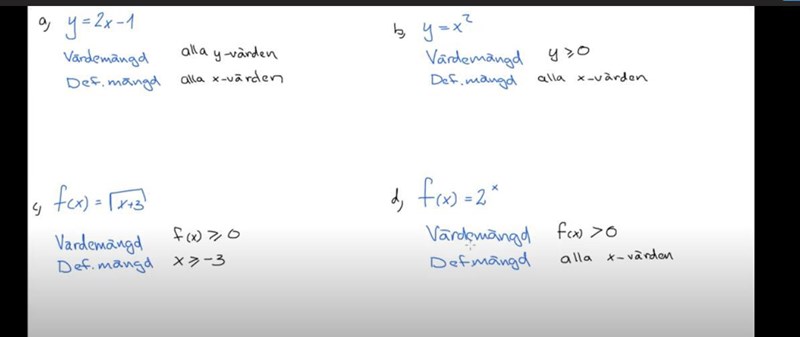 a) y = 2x - 1
Värdemängd alla y-värden
Def.mängd alla x-värden
b) y = x²
Värdemängd y ≥ 0
Def.mängd alla x-värden
c) f(x) = √x+3
Värdemängd f(x) ≥ 0
Def.mängd x ≥ -3
d) f(x) = 2ˣ
Värdemängd f(x) > 0
Defmängd alla x-värden